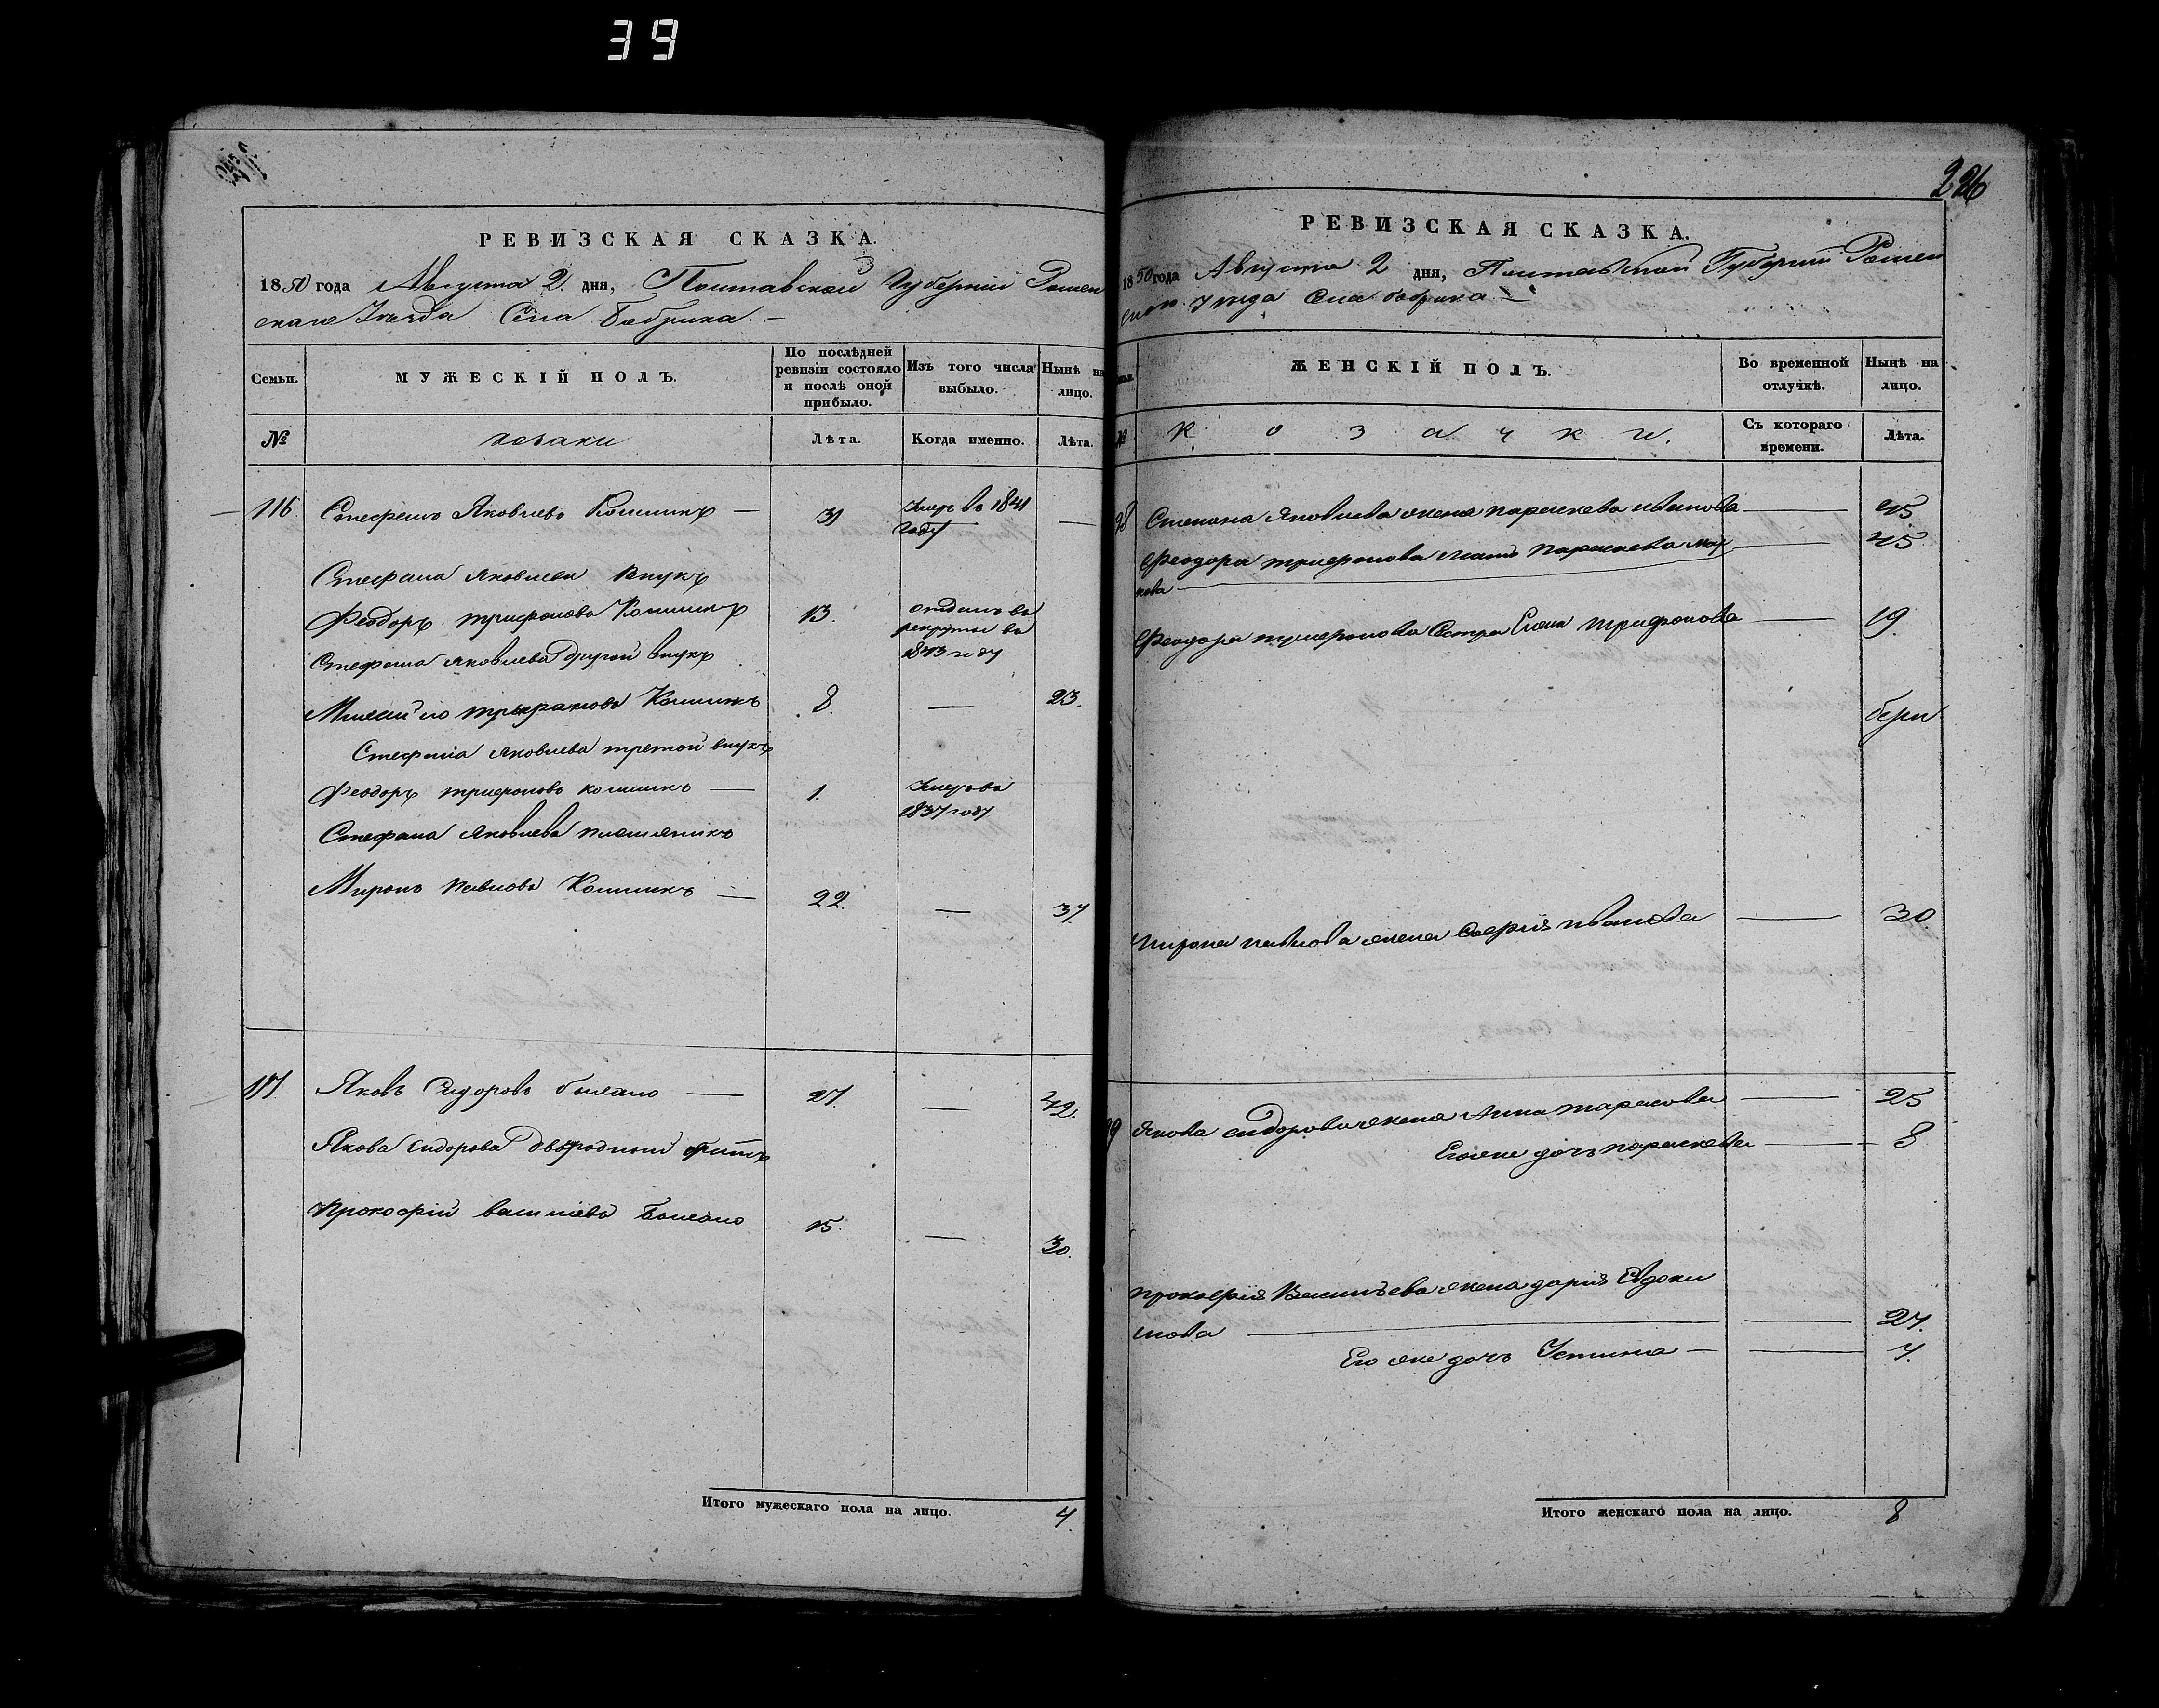 39
226
РЕВИЗСКАЯ СКАЗКА.
1850 года Августа 2. дня, Полтавской Губерніи Ромен
скаго Уезда Села Бобрика. —
Семьи.
МУЖЕСКІЙ ПОЛЪ.
По послѣдней ревизіи состояло и послѣ оной прибыло.
Изъ того числа выбыло.
Нынѣ на лицо.
№
козаки
Лѣта.
Когда именно.
Лѣта.
116 Стефанъ Яковлевъ — 31 Умеръ въ 1841 году —
Стефана Яковлева внукъ
Феодоръ Трифоновъ 13. отданъ въ рекруты въ 1843 году
Стефана Яковлева другой внукъ
Трифоновъ 8. — 23.
Стефана Яковлева третой внукъ
Феодоръ Трифоновъ — 1. Умеръ въ 1837 году
Стефана Яковлева племяникъ
Миронъ Павловъ — 22. — 37.
117. Яковъ Сидоровъ — 27. — 42.
Якова Сидорова двоюродный братъ
Прокофій Васильевъ 15. — 30.
Итого мужескаго пола на лицо. 4.
РЕВИЗСКАЯ СКАЗКА.
1850 года Августа 2 дня, Полтавской Губерніи Ромен
ског Уезда Села Бобрика —
ЖЕНСКІЙ ПОЛЪ.
Во временной отлучкѣ.
Нынѣ на лицо.
№
козачки.
Съ котораго времени.
Лѣта.
Степана Яковлева жена Параскева Иванова — 45
Феодора Трифонова мать Параскева Мар
кова — 45
Феодора Трифонова Сестра Елена Трифонова — 19.
Мирона Павлова жена Софія Иванова — 30.
Якова Сидорова жена Анна Тарасова — 25
Егоже дочь Параскева — 8
Прокофія Васильева жена Дарія Евдоки
мова — 27.
Его же дочь Устина — 7.
Итого женскаго пола на лицо. 8